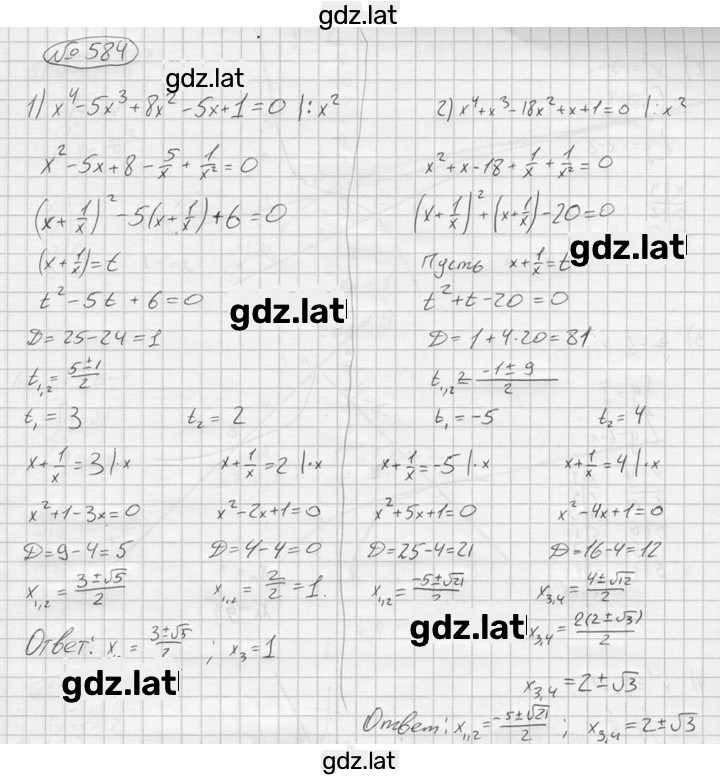 gdz.lat
№ 584
gdz.lat
1) x⁴-5x³+8x²-5x+1=0 |:x²
x²-5x+8-5/x+1/x²=0
(x+1/x)²-5(x+1/x)+6=0
(x+1/x)=t
t²-5t+6=0
gdz.lat
D=25-24=1
t₁,₂=(5±1)/2
t₁=3 t₂=2
x+1/x=3 |·x x+1/x=2 |·x
x²+1-3x=0 x²-2x+1=0
D=9-4=5 D=4-4=0
x₁,₂=(3±√5)/2 x₁,₂=2/2=1.
Ответ: x = (3±√5)/2; x₃=1
gdz.lat
2) x⁴+x³-18x²+x+1=0 |:x²
x²+x-18+1/x+1/x²=0
(x+1/x)²+(x+1/x)-20=0
gdz.lat
Пусть x+1/x=t
t²+t-20=0
D=1+4·20=81
t₁,₂=(-1±9)/2
t₁=-5 t₂=4
x+1/x=-5 |·x x+1/x=4 |·x
x²+5x+1=0 x²-4x+1=0
D=25-4=21 D=16-4=12
x₁,₂=(-5±√21)/2 x₃,₄=(4±√12)/2
gdz.lat
x₃,₄=2(2±√3)/2
x₃,₄=2±√3
Ответ: x₁,₂=(-5±√21)/2; x₃,₄=2±√3
gdz.lat